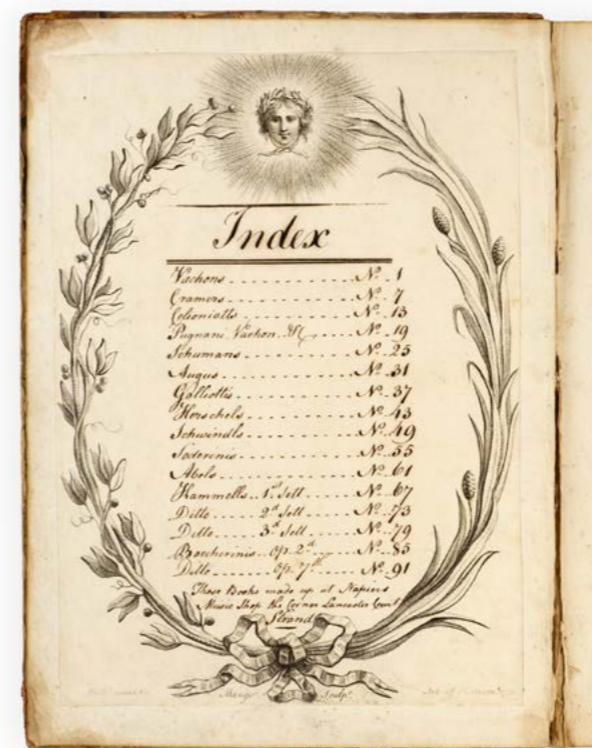 Index
Vachons N.o 1
Cramers N.o 7
Celioniatts N.o 13
Pugnani Vachon &c N.o 19
Schumans N.o 25
Augus N.o 31
Galliottis N.o 37
Herschels N.o 43
Schwindls N.o 49
Soderinis N.o 55
Abels N.o 61
Kammells 1.st Sett N.o 67
Ditto 2.d Sett N.o 73
Ditto 3.d Sett N.o 79
Boccherinis Op. 2.d N.o 85
Ditto Op. 7.th N.o 91
These Books made up at Napiers
Music Shop the Corner Lancaster Court
Strand
Sculp.t